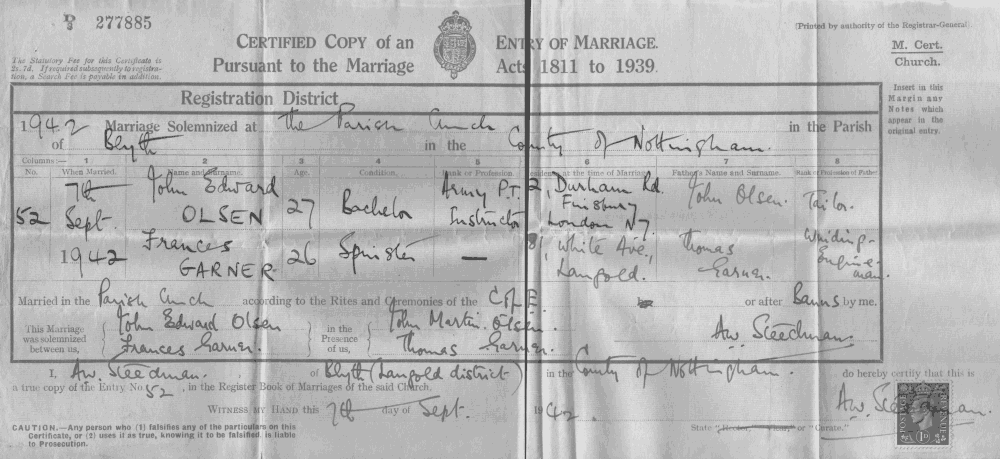 277885
(Printed by authority of the Registrar-General)
CERTIFIED COPY of an ENTRY OF MARRIAGE.
Pursuant to the Marriage Acts 1811 to 1939.
M. Cert.
Church.
The Statutory Fee for this Certificate is
2s. 7d. If required subsequently to registra-
tion, a Search Fee is payable in addition.
Insert in this
Margin any
Notes which
appear in the
original entry.
Registration District
1942 Marriage Solemnized at the Parish Church in the Parish
of Blyth in the County of Nottingham.
Columns:— 1 2 3 4 5 6 7 8
No. When Married. Name and Surname. Age. Condition. Rank or Profession at the time of Marriage Father's Name and Surname. Rank or Profession of Father
52 7th Sept. 1942
John Edward OLSEN 27 Bachelor Army P.T. Instructor 2, Durham Rd. Finsbury London N7. John Olsen. Tailor.
Frances GARNER 26 Spinster — 81, White Ave., Langold. Thomas Garner. Winding-Engine-man.
Married in the Parish Church according to the Rites and Ceremonies of the C of E. or after Banns by me.
This Marriage was solemnized between us, John Edward Olsen
Frances Garner.
in the Presence of us, John Martin Olsen.
Thomas Garner.
Aw. Steedman.
I, Aw. Steedman. of Blyth (Langold district) in the County of Nottingham. do hereby certify that this is
a true copy of the Entry No 52, in the Register Book of Marriages of the said Church.
WITNESS MY HAND this 7th day of Sept. 1942.
Aw. Steedman.
CAUTION.—Any person who (1) falsifies any of the particulars on this
Certificate, or (2) uses it as true, knowing it to be falsified, is liable
to Prosecution.
State "Rector, Vicar," or "Curate."
1D